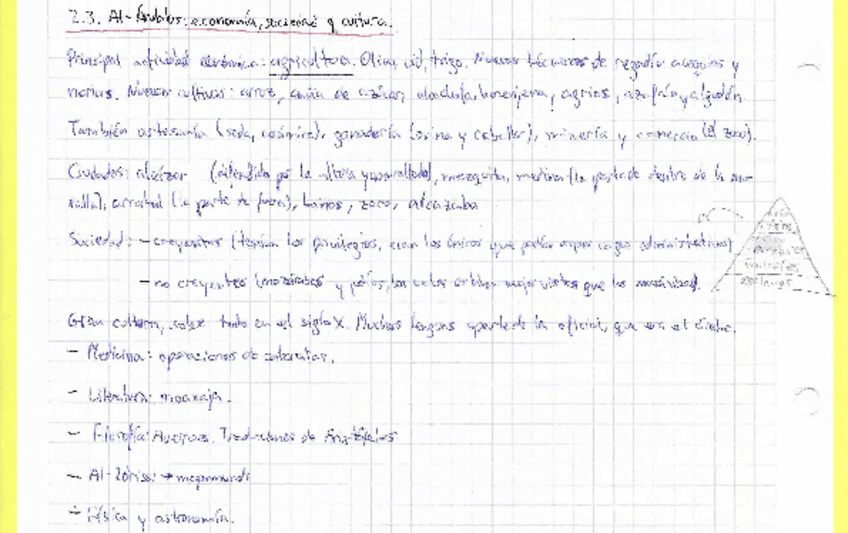 2.3. Al-Ándalus: economía, sociedad y cultura.
Principal actividad económica: agricultura. Olivo, vid, trigo. Nuevas técnicas de regadío acequias y
norias. Nuevos cultivos: arroz, caña de azúcar, alcachofa, berenjena, agrios, azafrán y algodón.
También artesanía (seda, cerámica), ganadería (ovina y caballar), minería y comercio (el zoco).
Ciudades: alcázar (defendido por la altura y amurallado), mezquita, medina (la parte de dentro de la mu-
ralla), arrabal (la parte de fuera), baños, zoco, alcazaba
Sociedad: - creyentes (tenían los privilegios, eran los únicos que podían ocupar cargos administrativos)
- no creyentes (mozárabes y judíos, los cuales estaban mejor vistos que los
Gran cultura, sobre todo en el siglo X. Muchas lenguas aparte de la oficial, que era el árabe.
- Medicina: operaciones de cataratas.
- Literatura: moaxaja.
- Filosofía: Averroes. Traducciones de Aristóteles
- Al-Idrisi: → mapamundi
- Física y astronomía.
esclavos